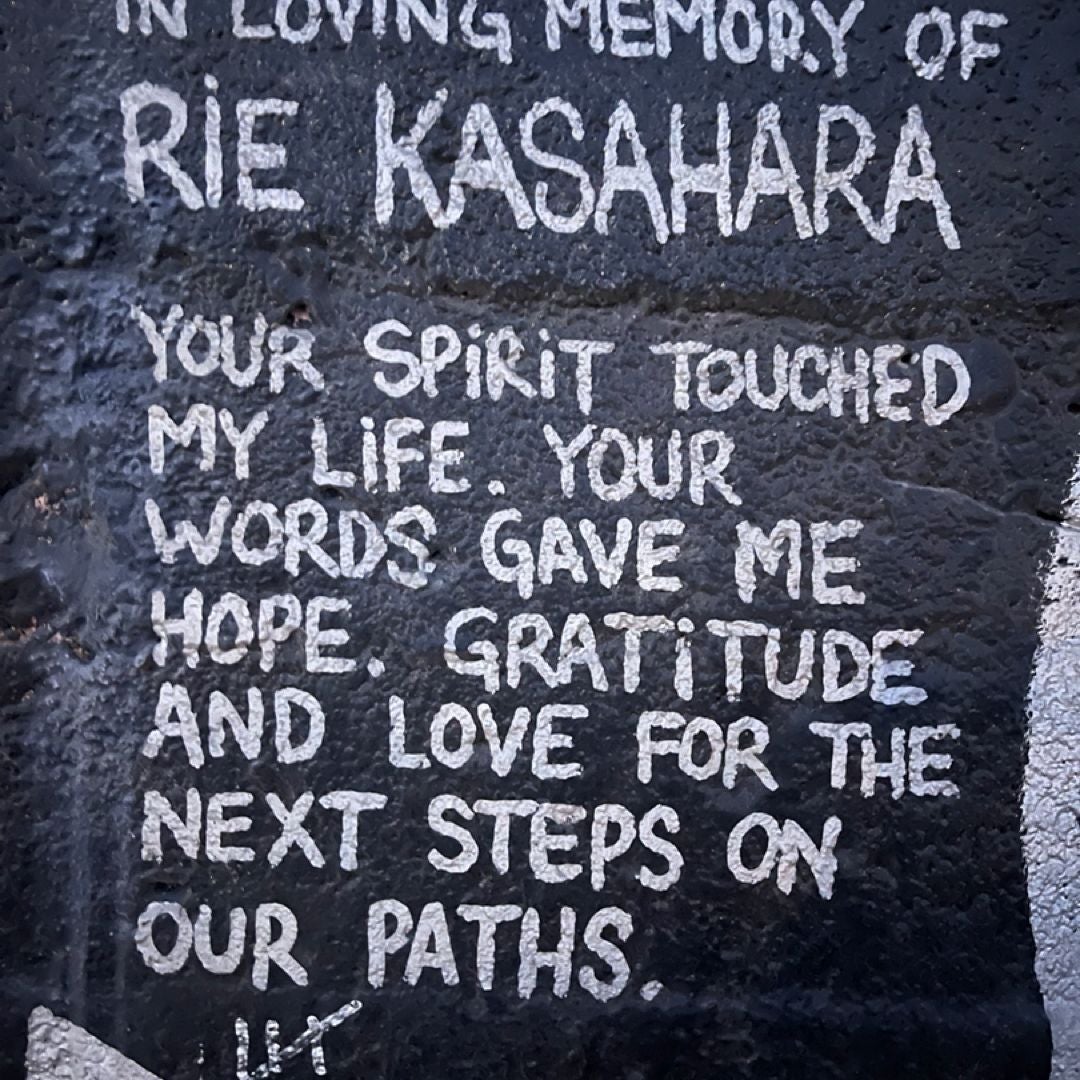 IN LOVING MEMORY OF
RiE KASAHARA
YOUR SPiRiT TOUCHED
MY LiFE. YOUR
WORDS GAVE ME
HOPE. GRATiTUDE
AND LOVE FOR THE
NEXT STEPS ON
OUR PATHS.